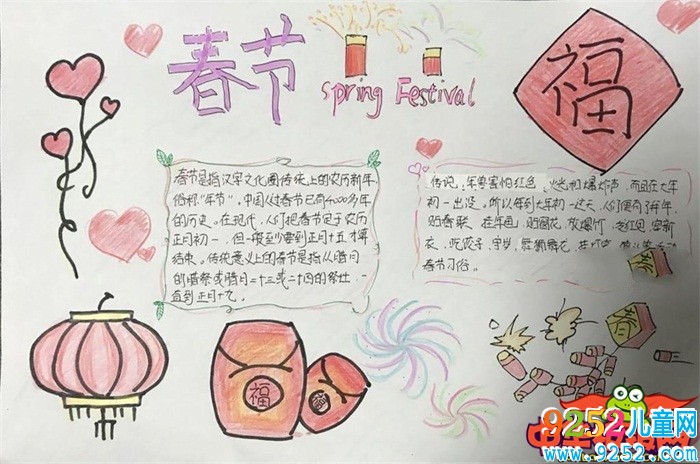 春节
Spring Festival
福
春节是指汉字文化圈传统上的农历新年,
俗称"年节",中国人过春节已有4000多年
的历史。在现代,人们把春节定于农历
正月初一,但一般至少要到正月十五才算
结束。传统意义上的春节是指从腊月
的腊祭或腊月二十三或二十四的祭灶,一
直到正月十九。
传说,年兽害怕红色 爆炸声,而且在大年
初一出没。所以每到大年初一这天,人们便有了拜年,
贴春联、年画、贴窗花、放爆竹、发红包、穿新
衣、吃饺子、守岁、舞狮舞龙
春节习俗。
福
福
春
9252儿童网
www.9252.com